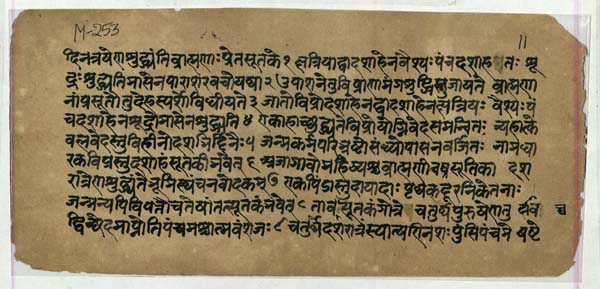 M-253
११
दिनत्रयेण शुद्ध्यंति ब्राह्मणाः प्रेतसूतके १ क्षत्रियो द्वादशाहेन वैश्यः पंचदशाह तः शू
द्रः शुद्ध्यति मासेन पाराशरवचो यथा २ उपाशने तु विप्राणामंगशुद्धिस्तु जायते ब्राह्मणा
नां प्रसूतौ तु देहस्पर्शो विधीयते ३ जातौ विप्रो दशाहेन द्वादशाहेन क्षत्रियः वैश्यः पं
चदशाहेन शूद्रो मासेन शुद्ध्यति ४ एकाहाच्छुद्ध्यते विप्रो योग्निवेदसमन्वितः त्र्यहात्के
वलवेदस्तु विहीनो दशभिर्दिनैः ५ जन्मकर्मपरिभ्रष्टो संध्योपासनवर्जितः नामधा
रकविप्रस्तु दशाहं सूतकी भवेत् ६ अजा गावो महिष्यश्च ब्राह्मणी नवसूतिका दश
रात्रेण शुद्ध्येत भूमिस्थं च नवोदकं ७ एकपिंडास्तु दायादाः पृथक् दारनिकेतनाः
जन्मन्यपि विपत्तौ च तेषां तत्सूतकं भवेत् ८ तावत् सूतकं गोत्रे चतुर्थपुरुषेण तु दाये च
द्विच्छेदमाप्नोति पंचमश्चात्मवंशजः ८ चतुर्थे दशरात्रं स्यात् षण्निशः पुंसि पंचमे षष्टे